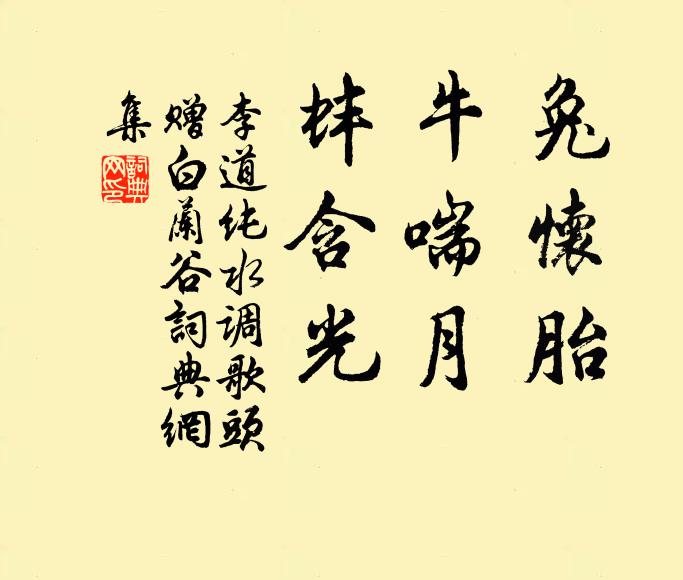 兔懷胎
牛喘月
蚌含光
李道纯水调歌頭
赠白蘭谷詞典網
集
詞典
网印